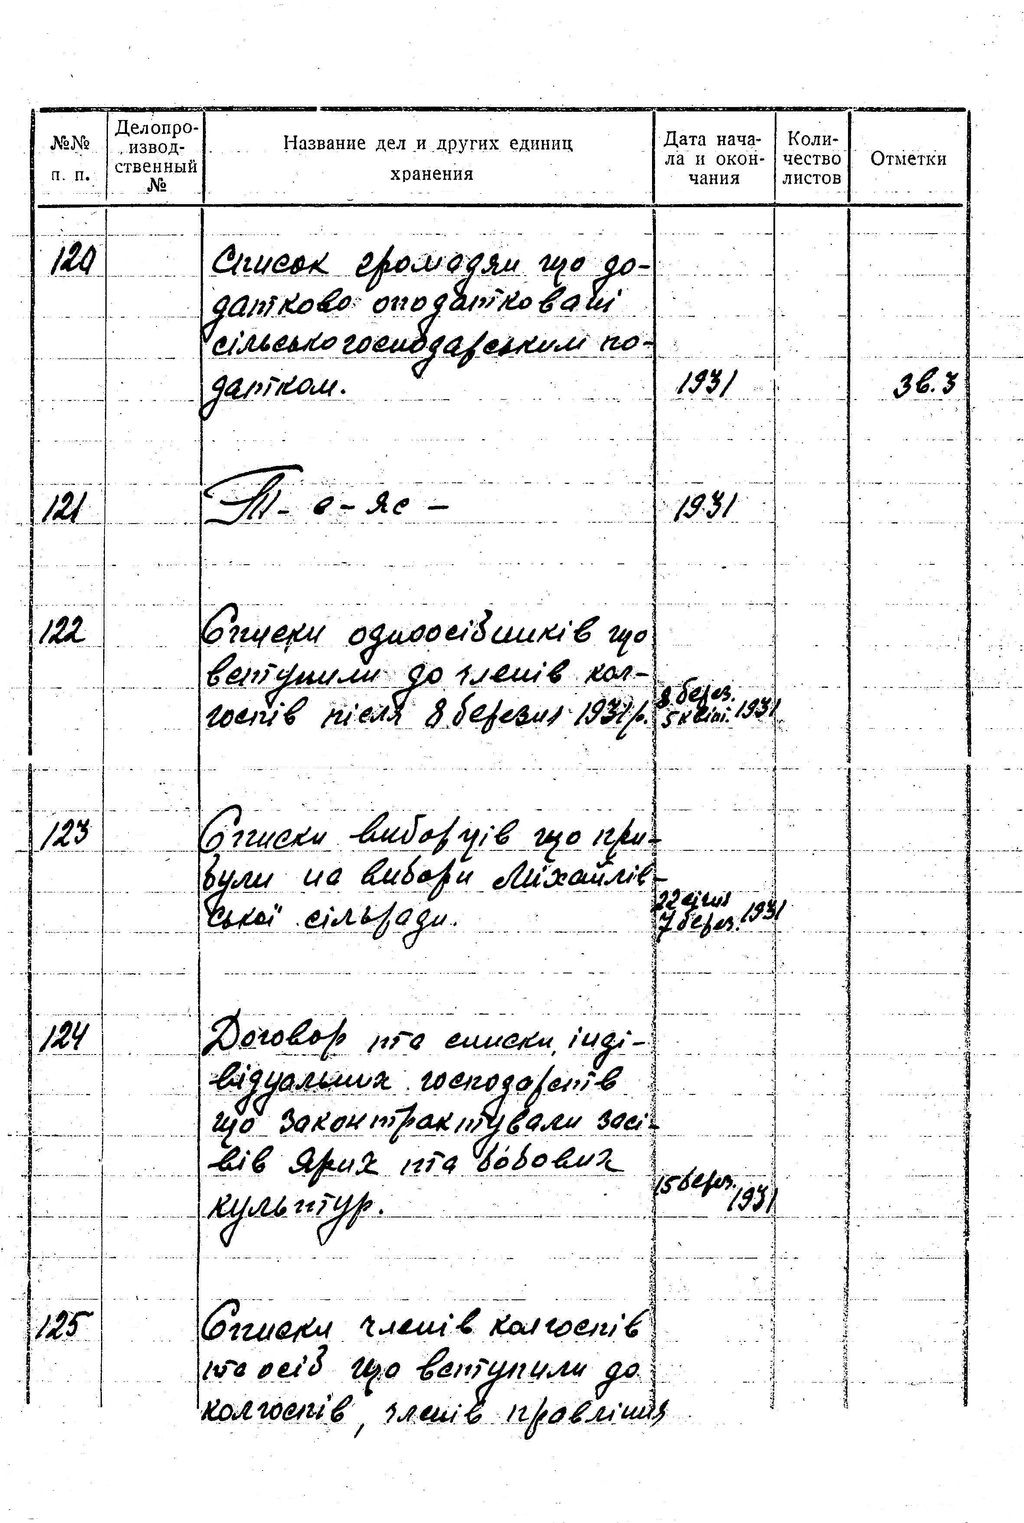 №№ п. п.
Делопро-
извод-
ственный
№
Название дел и других единиц
хранения
Дата нача-
ла и окон-
чания
Коли-
чество
листов
Отметки
120
Список громадян що до-
датково оподатковані
сільськогосподарським по-
датком. 1931 зв. 3
121 Т-а-яс- 1931
122 Списки одноосібників що
вступили до членів кол-
госпів після 8 березня 1931 р.
8 берез.
5 квіт. 1931
123 Списки виборців що при-
були на вибори Михайлів-
ської сільради.
22 січня
7 берез. 1931
124 Договор та списки інді-
відуальних господарств
що законтрактували засі-
вів ярих та бобових
культур.
15 берез. 1931
125 Списки членів колгоспів
та осіб що вступили до
колгоспів, членів правління